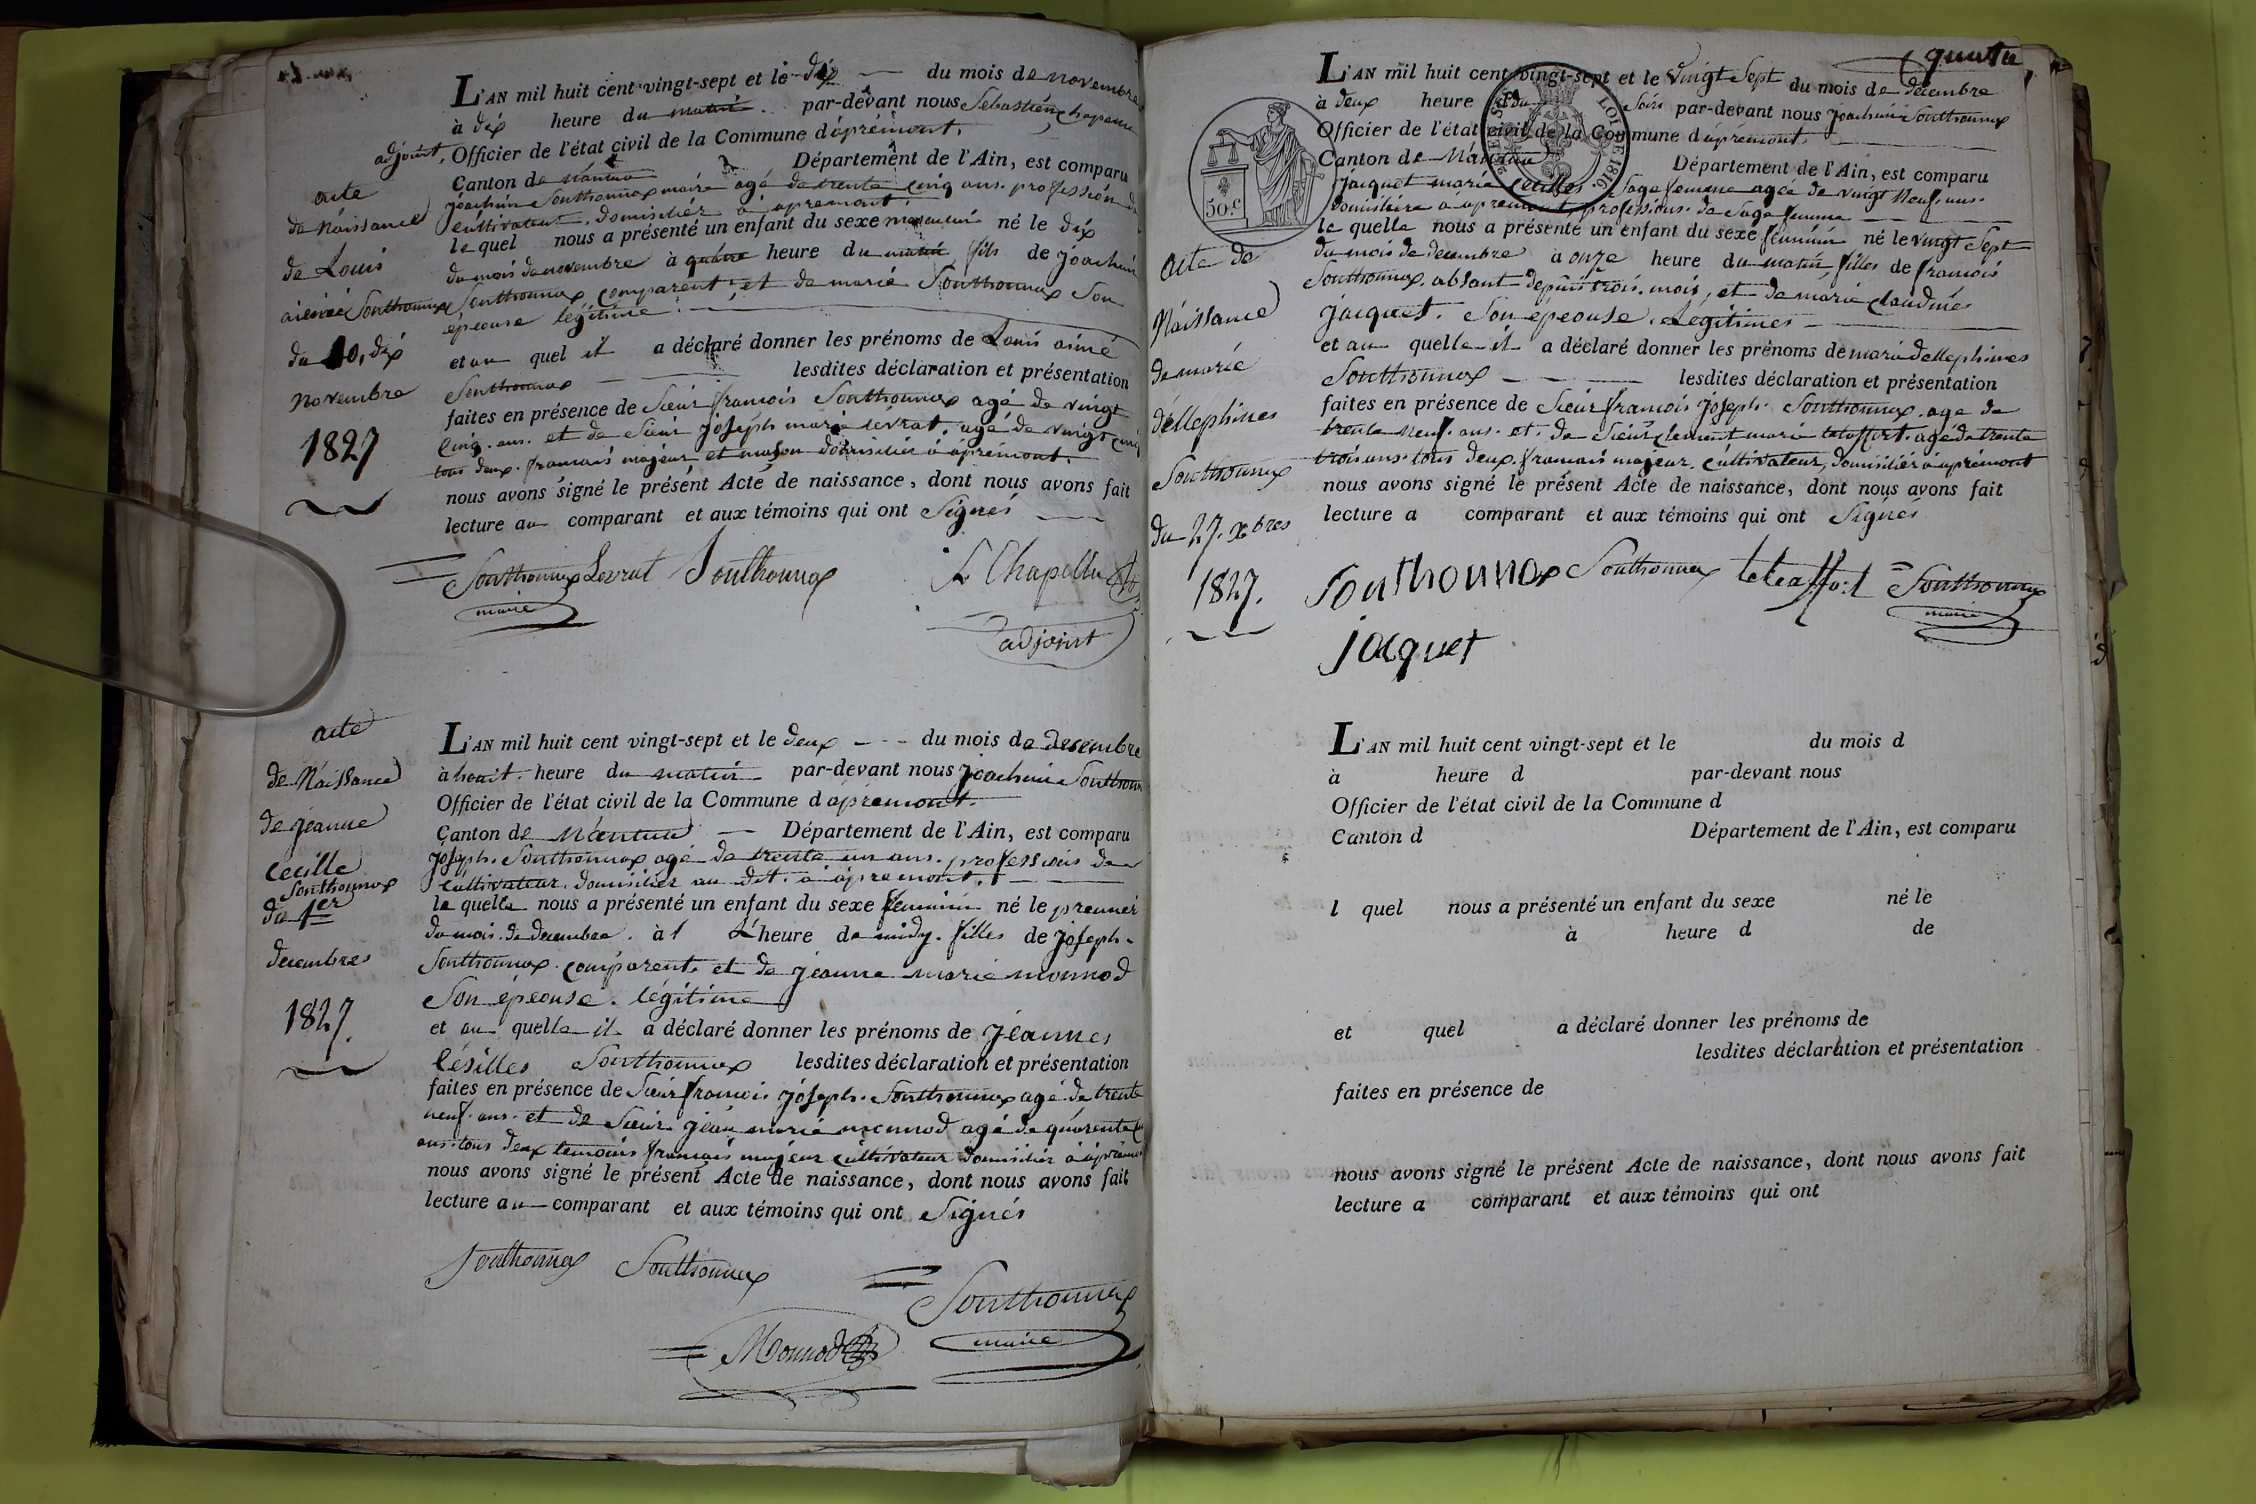 L'AN mil huit cent vingt-sept et le dix du mois de novembre
à dix heure du matin par-devant nous Sébastien Chapellu
adjoint, Officier de l'état civil de la Commune d'aprémont,
Canton de Nantua Département de l'Ain, est comparu
joachim Sonthonnax maire agé de trente cinq ans. profession de
cultivateur. domisilier à apremont.
le quel nous a présenté un enfant du sexe masculin né le dix
du mois de novembre à quatre heure du matin, fils de joachim
Sonthonnax comparent et de marie Sonthonnax Son
épeouse légitime
et au quel il a déclaré donner les prénoms de Louis aimé
Sonthonnax lesdites déclaration et présentation
faites en présence de Sieur francois Sonthonnax agé de vingt
Cinq. ans. et de Sieur joseph marie levrat. agé de vingt cinq
tous deux. francais majeur et domisilier à aprémont.
nous avons signé le présent Acte de naissance, dont nous avons fait
lecture au comparant et aux témoins qui ont Signés
Sonthonnax Levrat Sonthonnax S Chapellu
maire
adjoint
acte
de Naissance
de Louis
aimé Sonthonnax
du 10, dix
novembre
1827
L'AN mil huit cent vingt-sept et le deux du mois de decembre
à houit. heure du matin par-devant nous joachim Sonthonn
Officier de l'état civil de la Commune d'apremont.
Canton de Nantua Département de l'Ain, est comparu
joseph. Sonthonnax agé de trente un ans. professiois de
cultivateur. domisilier au dit. à apremont.
le quelle nous a présenté un enfant du sexe feminin né le premier
du mois. de decembre. à l L'heure de midy. filles de joseph.
Sonthonnax. comparent. et de jeanne marie monnod
Son épeouse. légitime
et au quelle il a déclaré donner les prénoms de jeannes
Césilles Sonthonnax lesdites déclaration et présentation
faites en présence de Sieur francois joseph. Sonthonnax agé de trente
neuf. ans. et de Sieur. jean marie monnod agé de quarente
ans. tous deux temoins francais majeur cultivateur domisilier à aprémon
nous avons signé le présent Acte de naissance, dont nous avons fait
lecture au comparant et aux témoins qui ont Signés
Sonthonnax Sonthonnax
Sonthonnax
Monnod maire
acte
de Naissance
de jeanne
cecille
Sonthonnax
du 1er
decembres
1827.
quatre
L'AN mil huit cent vingt-sept et le vingt Sept du mois de decembre
à deux heure du Soir par-devant nous joachim Sonthonnax
Officier de l'état civil de la Commune d'apremont
Canton de Nantua Département de l'Ain, est comparu
jacquet marie cecilles Sage femme agée de vingt Neuf. ans.
domisiliere à apremont, professions. de Sage femme
le quelle nous a présenté un enfant du sexe féminin né le vingt Sept
du mois de decembre à onze heure du matin, filles de francois
Sonthonnax. absant depuis trois. mois, et de marie claudines
jacquet. Son épeouse. Legitimes
et au quelle il a déclaré donner les prénoms de marie dellephines
Sonthonnax lesdites déclaration et présentation
faites en présence de Sieur francois joseph. Sonthonnax. agé de
trente neuf. ans. et. de Sieur clement marie tetaffort. agé de trente
trois ans. tous deux. francais majeur. cultivateur, domisilier à aprémont
nous avons signé le présent Acte de naissance, dont nous avons fait
lecture a comparant et aux témoins qui ont Signés
Sonthonnax Sonthonnax tetaffort Sonthonnax
maire
jacquet
50.c
LOI DE 1816.
acte de
Naissance
de marie
dellephines
Sonthonnax
du 27. xbres
1827.
L'AN mil huit cent vingt-sept et le du mois d
à heure d par-devant nous
Officier de l'état civil de la Commune d
Canton d Département de l'Ain, est comparu
l quel nous a présenté un enfant du sexe né le
à heure d de
et quel a déclaré donner les prénoms de
lesdites déclaration et présentation
faites en présence de
nous avons signé le présent Acte de naissance, dont nous avons fait
lecture a comparant et aux témoins qui ont